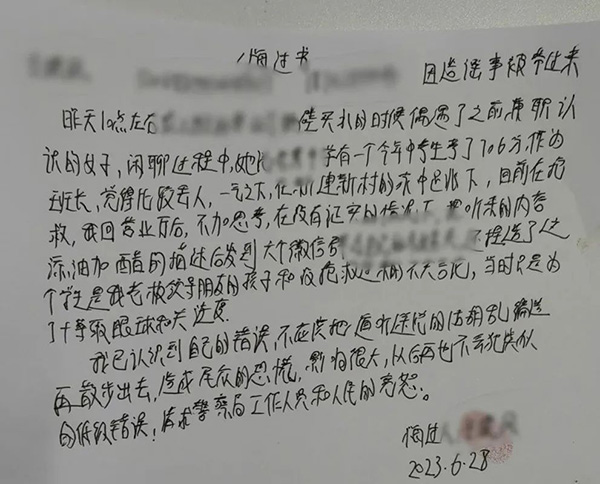 悔过书
因造谣事被带过来
昨天10点左右 买东西的时候偶遇了之前兼职认
识的女子，闲聊过程中，她说 学有一个今年中考生考了706分，作为
班长，觉得比较丢人，一气之下，在 建新村的家中跳下，目前在抢
救，我回营业厅后，不加思考，在没有证实的情况下，把听来的内容
添油加醋的描述后发到大个微信群 捏造了这
个学生是我老板 朋友的孩子和 抢救 不大 ，当时只是为
了争取眼球和关注度。
我已认识到自己的错误，不应该把道听途说的 乱编造
再散步出去，造成民众的恐慌，影响很大，以后再也不会犯类似
的低级错误，请求警察局工作人员和人民的宽恕。
悔过人
2023.6.28